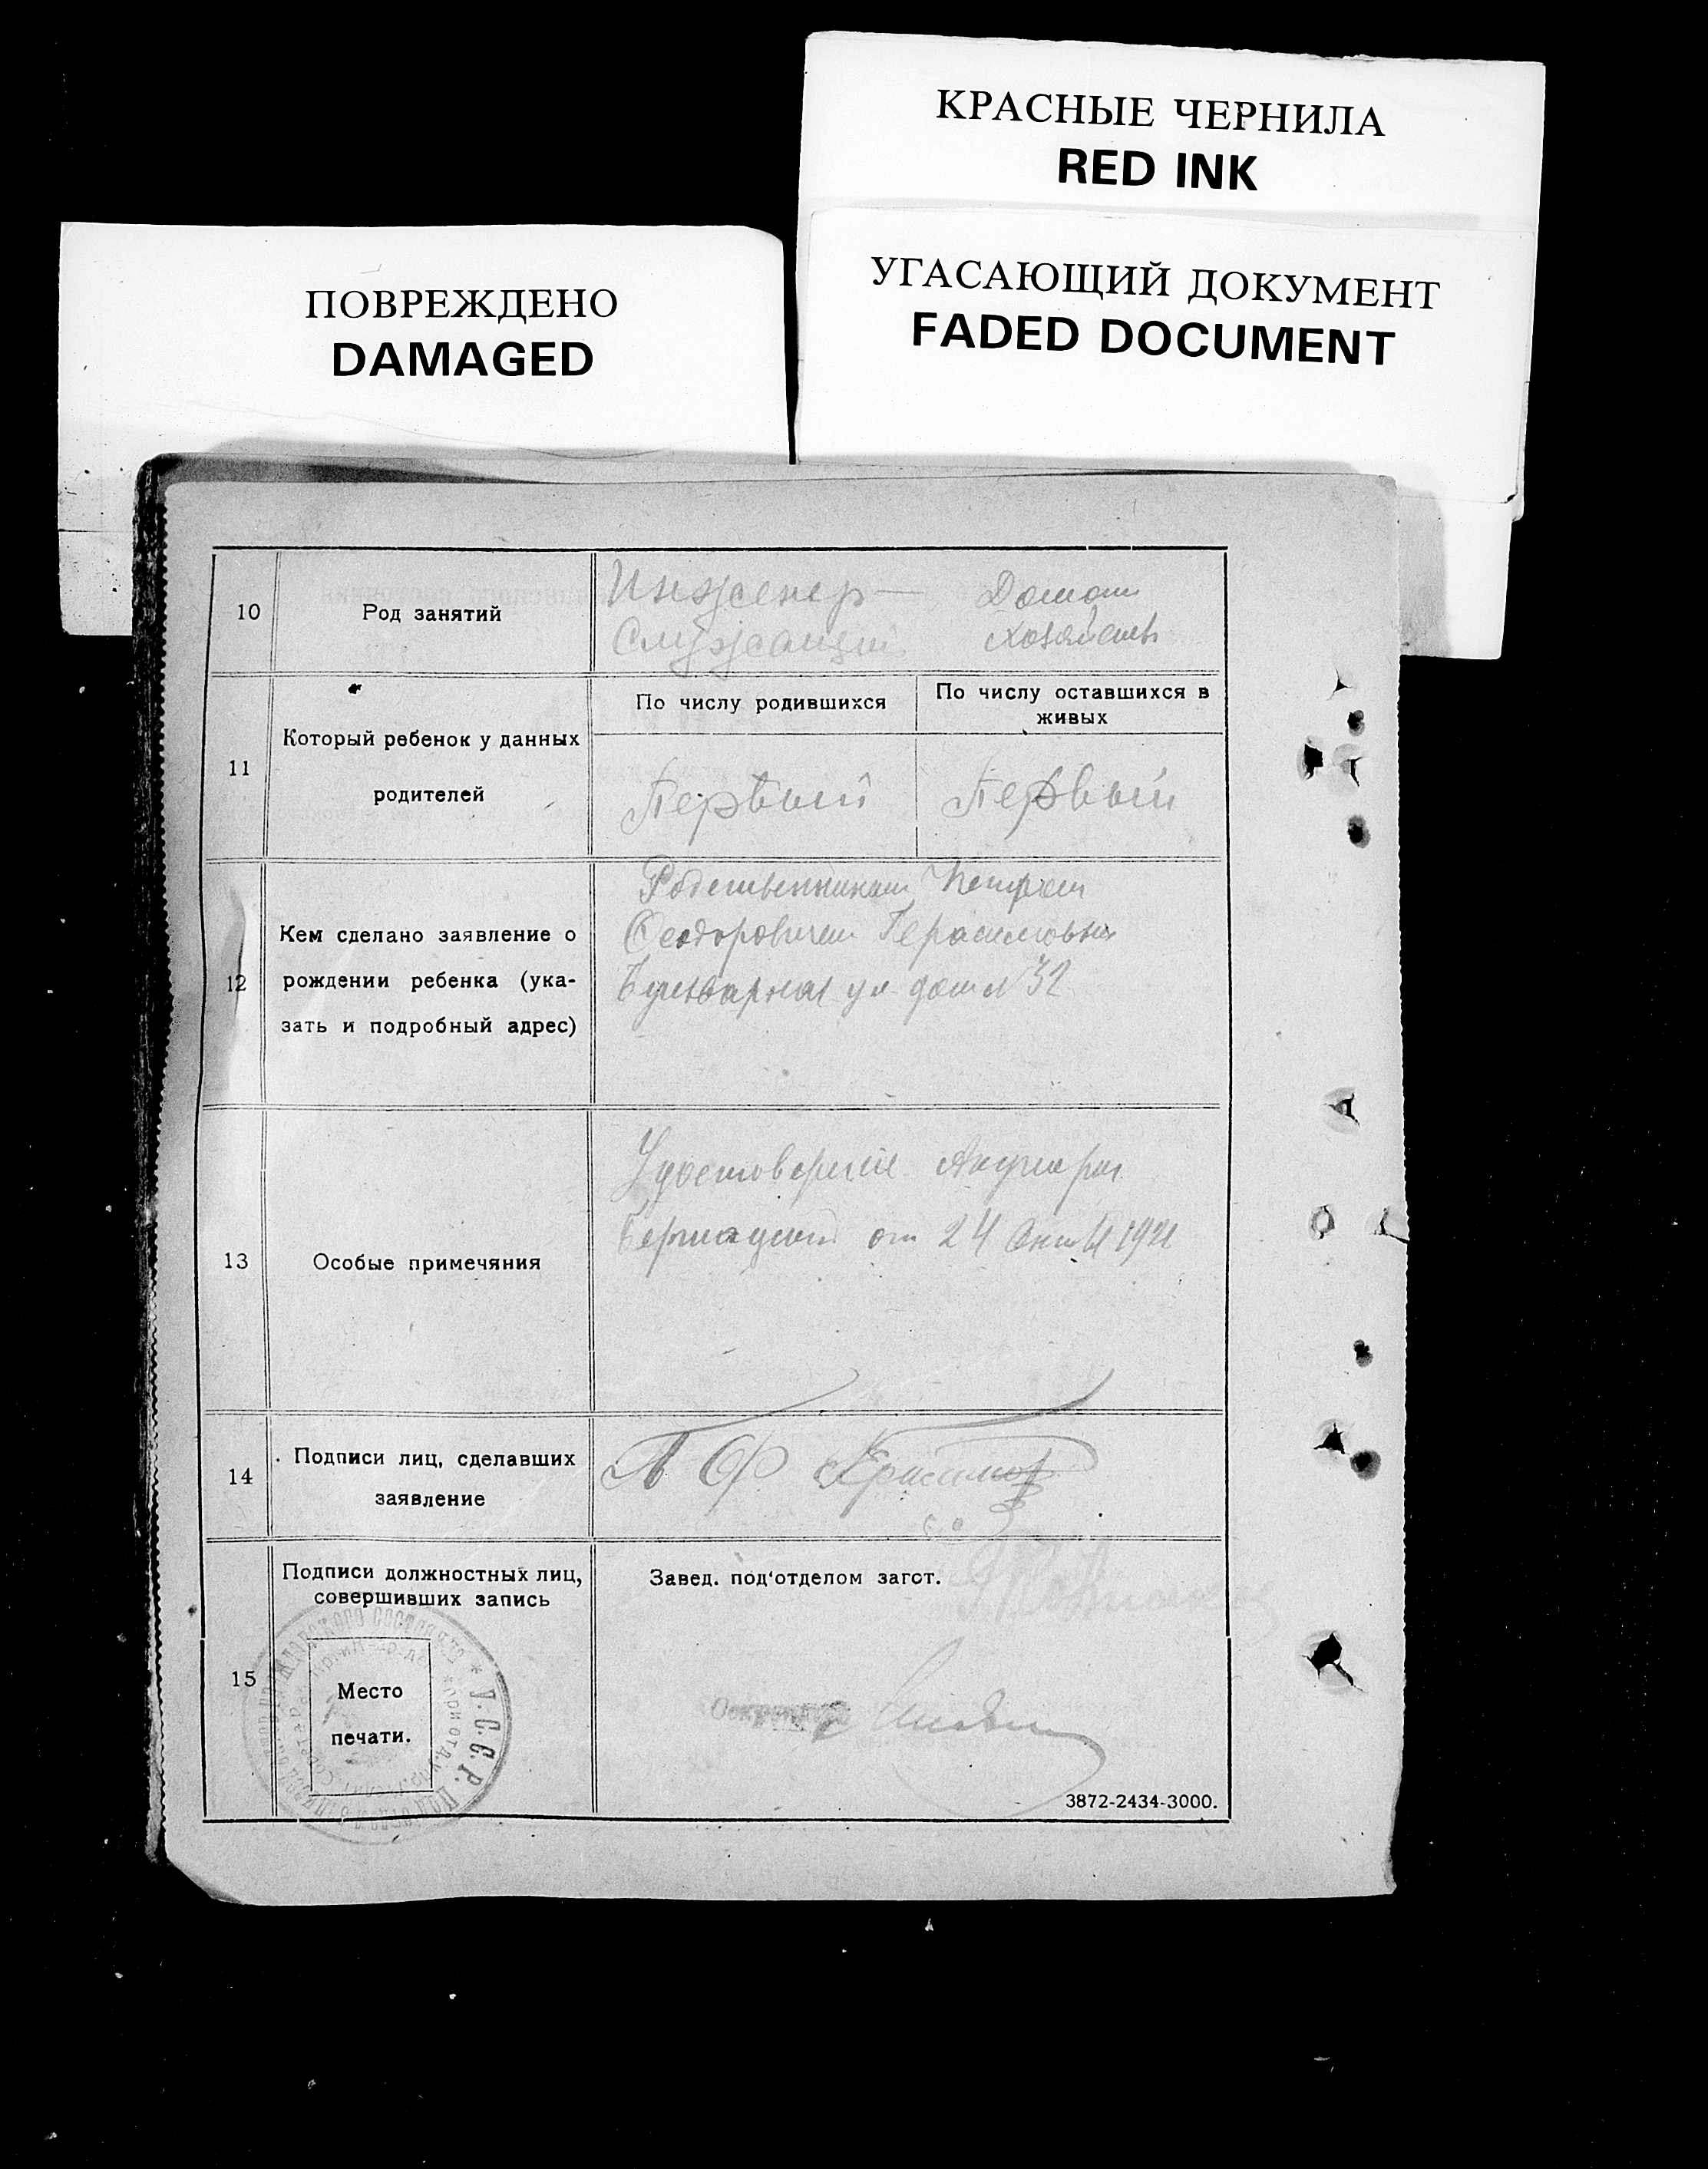 КРАСНЫЕ ЧЕРНИЛА
RED INK
УГАСАЮЩИЙ ДОКУМЕНТ
FADED DOCUMENT
ПОВРЕЖДЕНО
DAMAGED
10
Род занятий
Инженер — Домаш
Служащий хозяйств
11
Который ребенок у данных
родителей
По числу родившихся
По числу оставшихся в
живых
Первый
Первый
12
Кем сделано заявление о
рождении ребенка (ука-
зать и подробный адрес)
Родственником Петром
Феодоровичем
ул дом № 32
13
Особые примечяния
Удостоверение Акушерки
от 24
14
Подписи лиц, сделавших
заявление
П Ф
15
Подписи должностных лиц,
совершивших запись
Место
печати.
У.С.С.Р.
Завед. под'отделом загст.
3872-2434-3000.